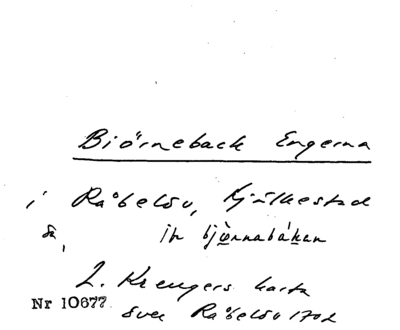 Biörneback Engerna
i Råbelöv, Fjälkestad
sa. ik bjönnabákan
L. Krengers karta
Nr 10677
över Råbelöv 1702